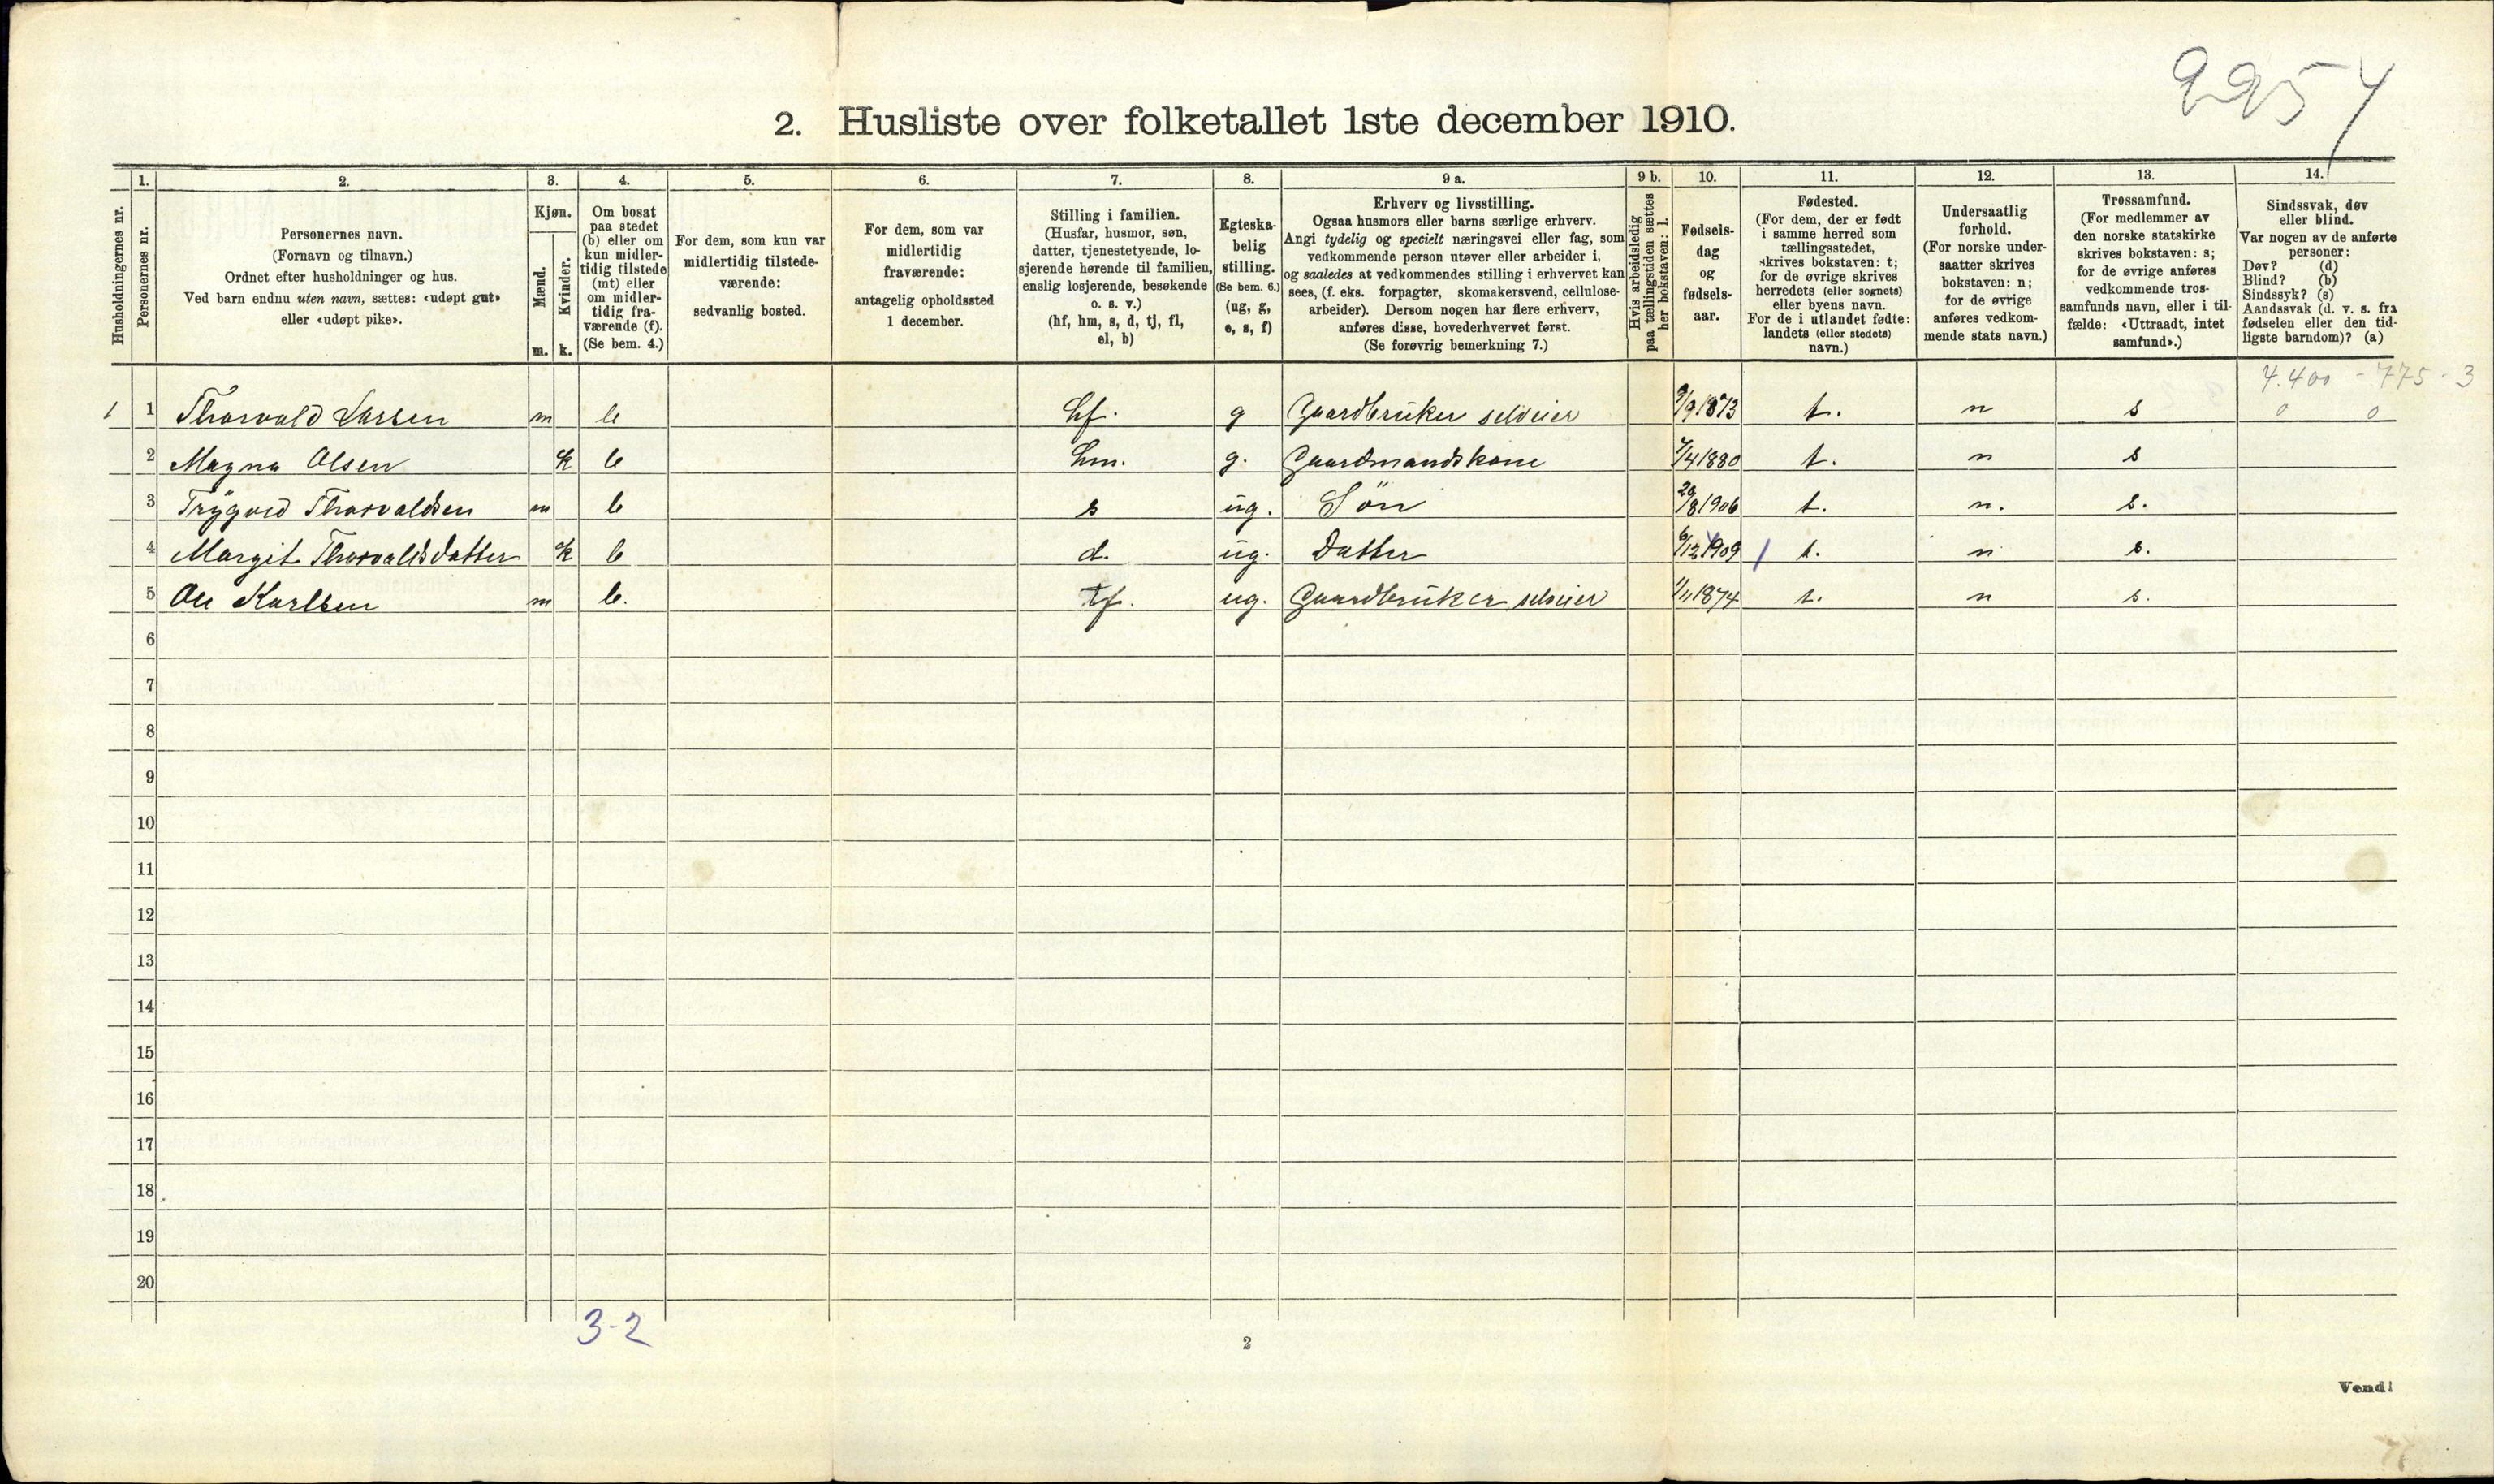 2257
2. Husliste over folketallet 1ste december 1910.
Husholdningernes nr.
1.
Personernes nr.
2.
Personernes navn.
(Fornavn og tilnavn.)
Ordnet efter husholdninger og hus.
Ved barn endnu uten navn, sættes: «udøpt gut»
eller «udøpt pike».
3.
Kjøn.
Mænd.
Kvinder.
m. k.
4.
Om bosat
paa stedet
(b) eller om
kun midler-
tidig tilstede
(mt) eller
om midler-
tidig fra-
værende (f).
(Se bem. 4.)
5.
For dem, som kun var
midlertidig tilstede-
værende:
sedvanlig bosted.
6.
For dem, som var
midlertidig
fraværende:
antagelig opholdssted
1 december.
7.
Stilling i familien.
(Husfar, husmor, søn,
datter, tjenestetyende, lo-
sjerende hørende til familien,
enslig losjerende, besøkende
o. s. v.)
(hf, hm, s, d, tj, fl,
el, b)
8.
Egteska-
belig
stilling.
(Se bem. 6.)
(ug, g,
e, s, f)
9 a.
Erhverv og livsstilling.
Ogsaa husmors eller barns særlige erhverv.
Angi tydelig og specielt næringsvei eller fag, som
vedkommende person utøver eller arbeider i,
og saaledes at vedkommendes stilling i erhvervet kan
sees, (f. eks. forpagter, skomakersvend, cellulose-
arbeider). Dersom nogen har flere erhverv,
anføres disse, hovederhvervet først.
(Se forøvrig bemerkning 7.)
9 b.
Hvis arbeidsledig
paa tællingstiden sættes
her bokstaven: l.
10.
Fødsels-
dag
og
fødsels-
aar.
11.
Fødested.
(For dem, der er født
i samme herred som
tællingsstedet,
skrives bokstaven: t;
for de øvrige skrives
herredets (eller sognets)
eller byens navn.
For de i utlandet fødte:
landets (eller stedets)
navn.)
12.
Undersaatlig
forhold.
(For norske under-
saatter skrives
bokstaven: n;
for de øvrige
anføres vedkom-
mende stats navn.)
13.
Trossamfund.
(For medlemmer av
den norske statskirke
skrives bokstaven: s;
for de øvrige anføres
vedkommende tros-
samfunds navn, eller i til-
fælde: «Uttraadt, intet
samfund».)
14.
Sindssvak, døv
eller blind.
Var nogen av de anførte
personer:
Døv? (d)
Blind? (b)
Sindssyk? (s)
Aandssvak (d. v. s. fra
fødselen eller den tid-
ligste barndom)? (a)
4.400 - 775 - 3
1 1 Thorvald Larsen m b hf. g Gaardbruker selveier 9/9 1873 t. n s 0 0
2 Magna Olsen k b hm. g. Gaardmandskone 7/4 1880 t. n s
3 Trygved Thorvaldsen m b s ug. Søn 29/8 1906 t. n. s.
4 Margit Thorvaldsdatter k b d. ug. Datter 6/12 1909 t. n s.
5 Ole Karlsen m b. ug. Gaardbruker selveier 1/11 1874 t. n s.
6
7
8
9
10
11
12
13
14
15
16
17
18
19
20
3-2
2
Vend!